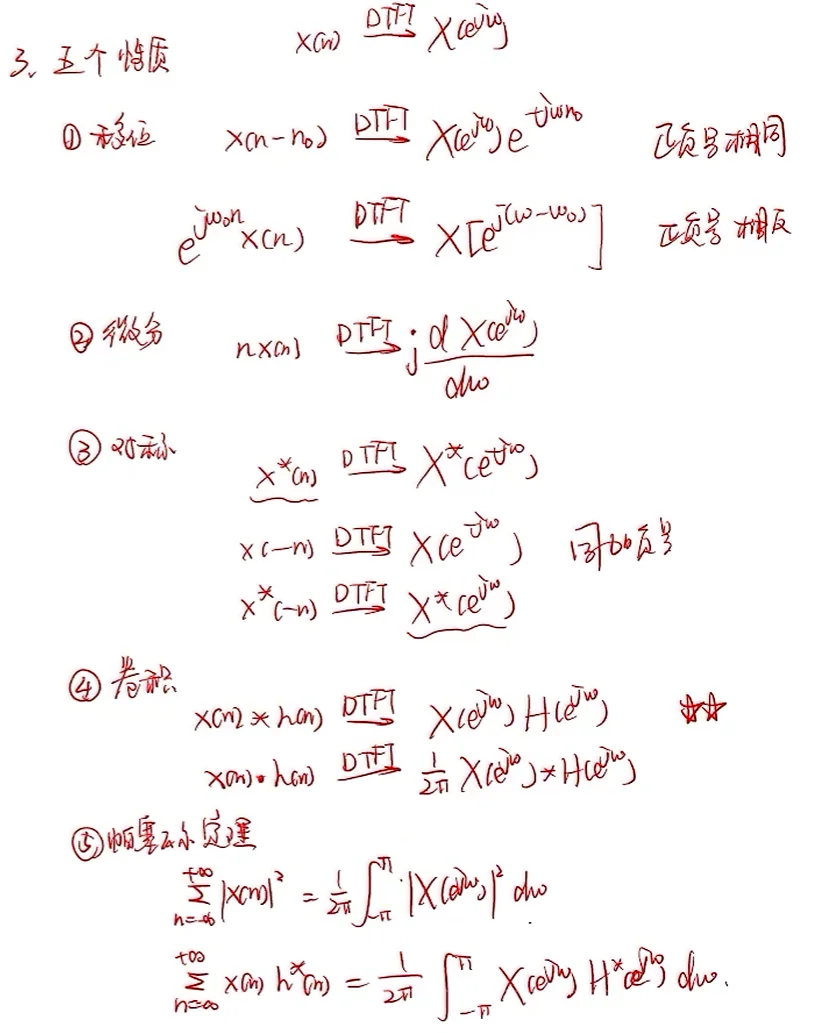 3. 五个性质 x(n) DTFT→ X(e^{jω})
① 移位 x(n-n₀) DTFT→ X(e^{jω}) e^{-jωn₀} 正负号相同
e^{jω₀n} x(n) DTFT→ X[e^{j(ω-ω₀)}] 正负号相反
② 微分 nx(n) DTFT→ j dX(e^{jω})/dω
③ 对称 x*(n) DTFT→ X*(e^{-jω})
x(-n) DTFT→ X(e^{-jω}) 同加负号
x*(-n) DTFT→ X*(e^{jω})
④ 卷积
x(n) * h(n) DTFT→ X(e^{jω}) H(e^{jω}) ☆☆
x(n)·h(n) DTFT→ 1/2π X(e^{jω}) * H(e^{jω})
⑤ 帕塞瓦尔定理
∑_{n=-∞}^{+∞} |x(n)|² = 1/2π ∫_{-π}^{π} |X(e^{jω})|² dω
∑_{n=∞}^{+∞} x(n) h*(n) = 1/2π ∫_{-π}^{π} X(e^{jω}) H*(e^{jω}) dω.